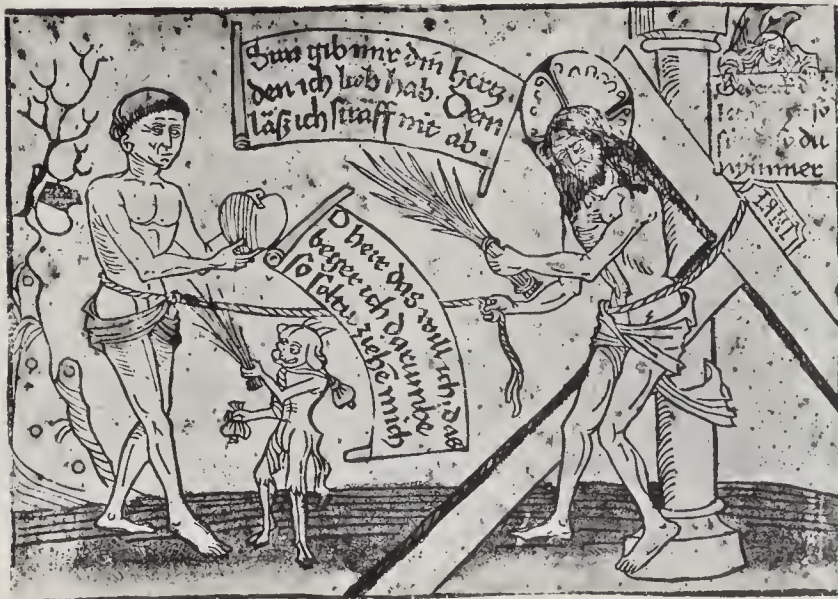 Sun gib mir din hertz.
den ich lieb hab. Dem
läß ich straff nit ab.
O herr das will ich das
beger ich darumbe
so soltu ziehē mich
so
du
nimmer